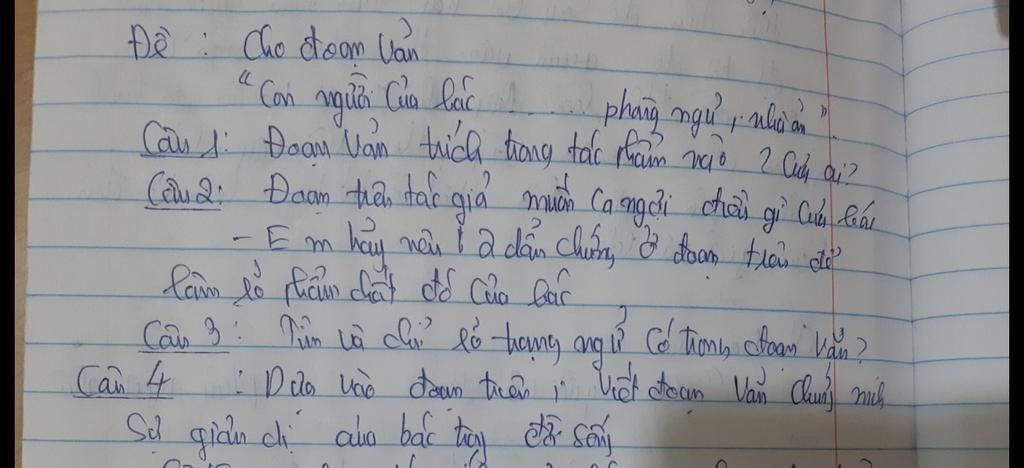 Đề : Cho đoạn Văn
"Con người của Bác ........ phòng ngủ, nhà ăn".
Câu 1: Đoạn Văn trích trong tác phẩm nào ? Của ai?
Câu 2: Đoạn trên tác giả muốn ca ngợi điều gì của Bác
- Em hãy nêu 1 2 dẫn chứng ở đoạn trên để
làm rõ phẩm chất đó của Bác
Câu 3: Tìm và chỉ rõ trạng ngữ có trong đoạn văn?
Câu 4 : Dựa vào đoạn trên, viết đoạn Văn chứng minh
Sự giản dị của bác trong đời sống